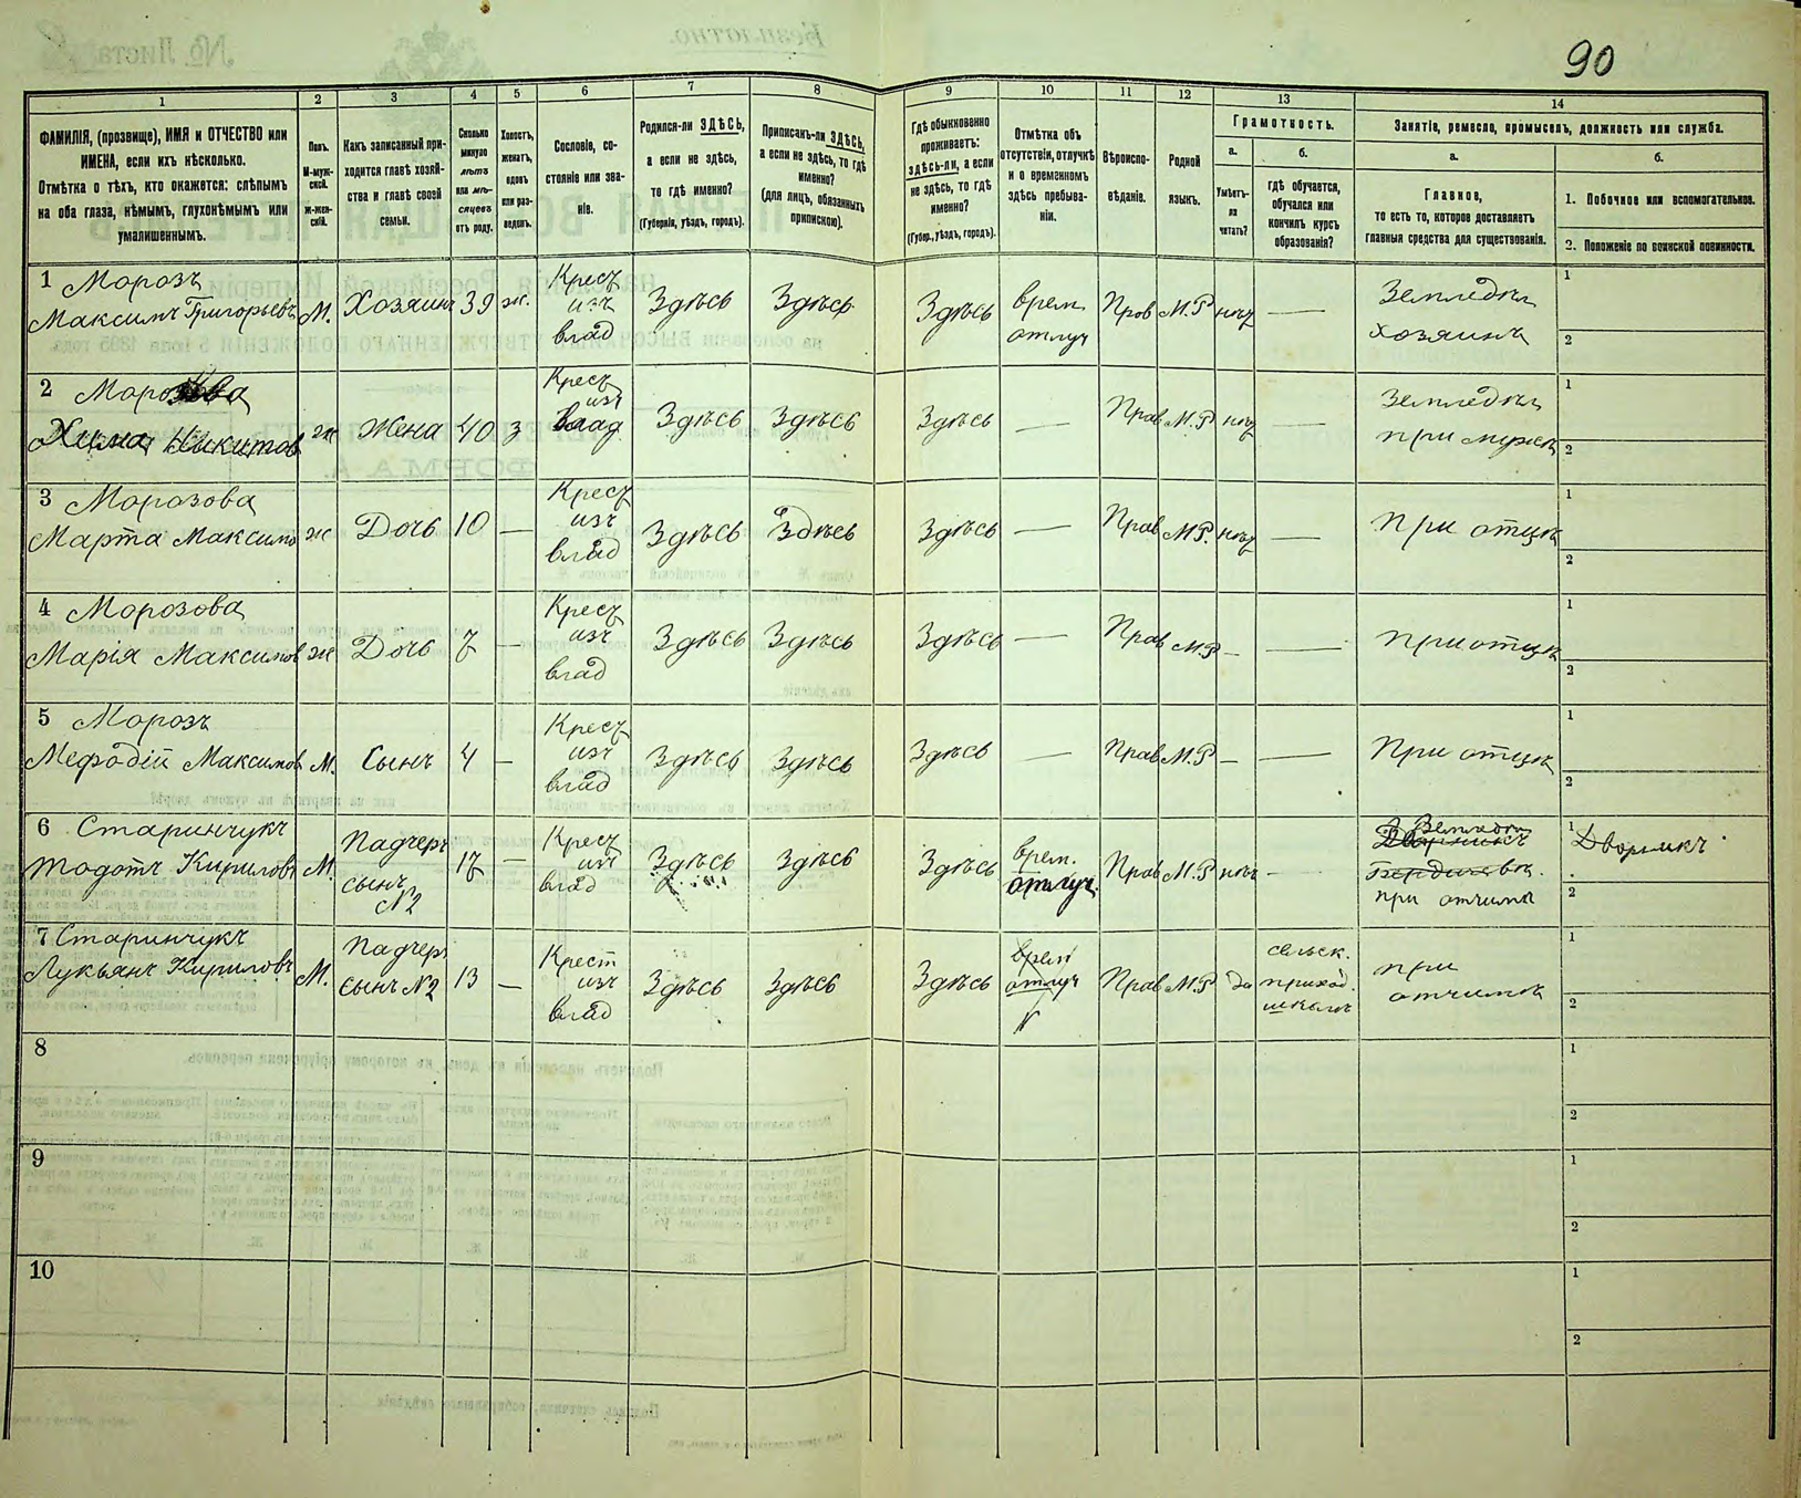 90
1 2 3 4 5 6 7 8 9 10 11 12 13 14
ФАМИЛІЯ, (прозвище), ИМЯ и ОТЧЕСТВО или
ИМЕНА, если ихъ нѣсколько.
Отмѣтка о тѣхъ, кто окажется: слѣпымъ
на оба глаза, нѣмымъ, глухонѣмымъ или
умалишеннымъ.
Полъ.
М-муж-
ской.
Ж-жен-
скій.
Какъ записанный при-
ходится главѣ хозяй-
ства и главѣ своей
семьи.
Сколько
минуло
лѣтъ
или мѣ-
сяцевъ
отъ роду.
Холостъ,
женатъ,
вдовъ
или раз-
веденъ.
Сословіе, со-
стояніе или зва-
ніе.
Родился-ли ЗДѢСЬ,
а если не здѣсь,
то гдѣ именно?
(Губернія, уѣздъ, городъ).
Приписанъ-ли ЗДѢСЬ,
а если не здѣсь, то гдѣ
именно?
(для лицъ, обязанныхъ
припискою).
Гдѣ обыкновенно
проживаетъ:
здѣсь-ли, а если
не здѣсь, то гдѣ
именно?
(Губер., уѣздъ, городъ).
Отмѣтка объ
отсутствіи, отлучкѣ
и о временномъ
здѣсь пребыва-
ніи.
Вѣроиспо-
вѣданіе.
Родной
языкъ.
Грамотность.
а.
Умѣетъ-
ли
читать?
б.
гдѣ обучается,
обучался или
кончилъ курсъ
образованія?
Занятіе, ремесло, промыселъ, должность или служба.
а.
Главное,
то есть то, которое доставляетъ
главныя средства для существованія.
б.
1. Побочное или вспомогательное.
2. Положеніе по воинской повинности.
1 Морозъ
Максимъ Григорьевъ М. Хозяинъ 39 ж.
Крест
изъ
влад
Здѣсь Здѣсь Здѣсь
врем.
отлуч
Прав М.Р нѣт —
Земледѣл
хозяинъ
1
2
2 Морозова
Хима Никитов ж Жена 40 З
Крест
изъ
влад
Здѣсь Здѣсь Здѣсь — Прав М.Р нѣт —
Земледѣл
при мужѣ
1
2
3 Морозова
Марта Максимо ж Дочь 10 —
Крест
изъ
влад
Здѣсь Здѣсь Здѣсь — Прав М.Р. нѣт — При отцѣ
1
2
4 Морозова
Марія Максимов ж Дочь 7 —
Крест
изъ
влад
Здѣсь Здѣсь Здѣсь — Прав М.Р — — При отцѣ
1
2
5 Морозъ
Мефодій Максимов М. Сынъ 4 —
Крест
изъ
влад
Здѣсь Здѣсь Здѣсь — Прав М.Р — — При отцѣ
1
2
6 Старинчукъ
Тодотъ Кириловъ М.
Падчер
сынъ
N2
17 —
Крест
изъ
влад
Здѣсь Здѣсь Здѣсь
врем.
отлуч.
Прав М.Р нѣт —
при отчимѣ
1 Дворникъ
2
7 Старинчукъ
Лукьянъ Кириловъ М.
Падчер
сынъ N2
13 —
Крест
изъ
влад
Здѣсь Здѣсь Здѣсь
врем
отлуч
Прав М.Р да
сельск.
приход.
школѣ
при
отчимѣ
1
2
8
1
2
9
1
2
10
1
2